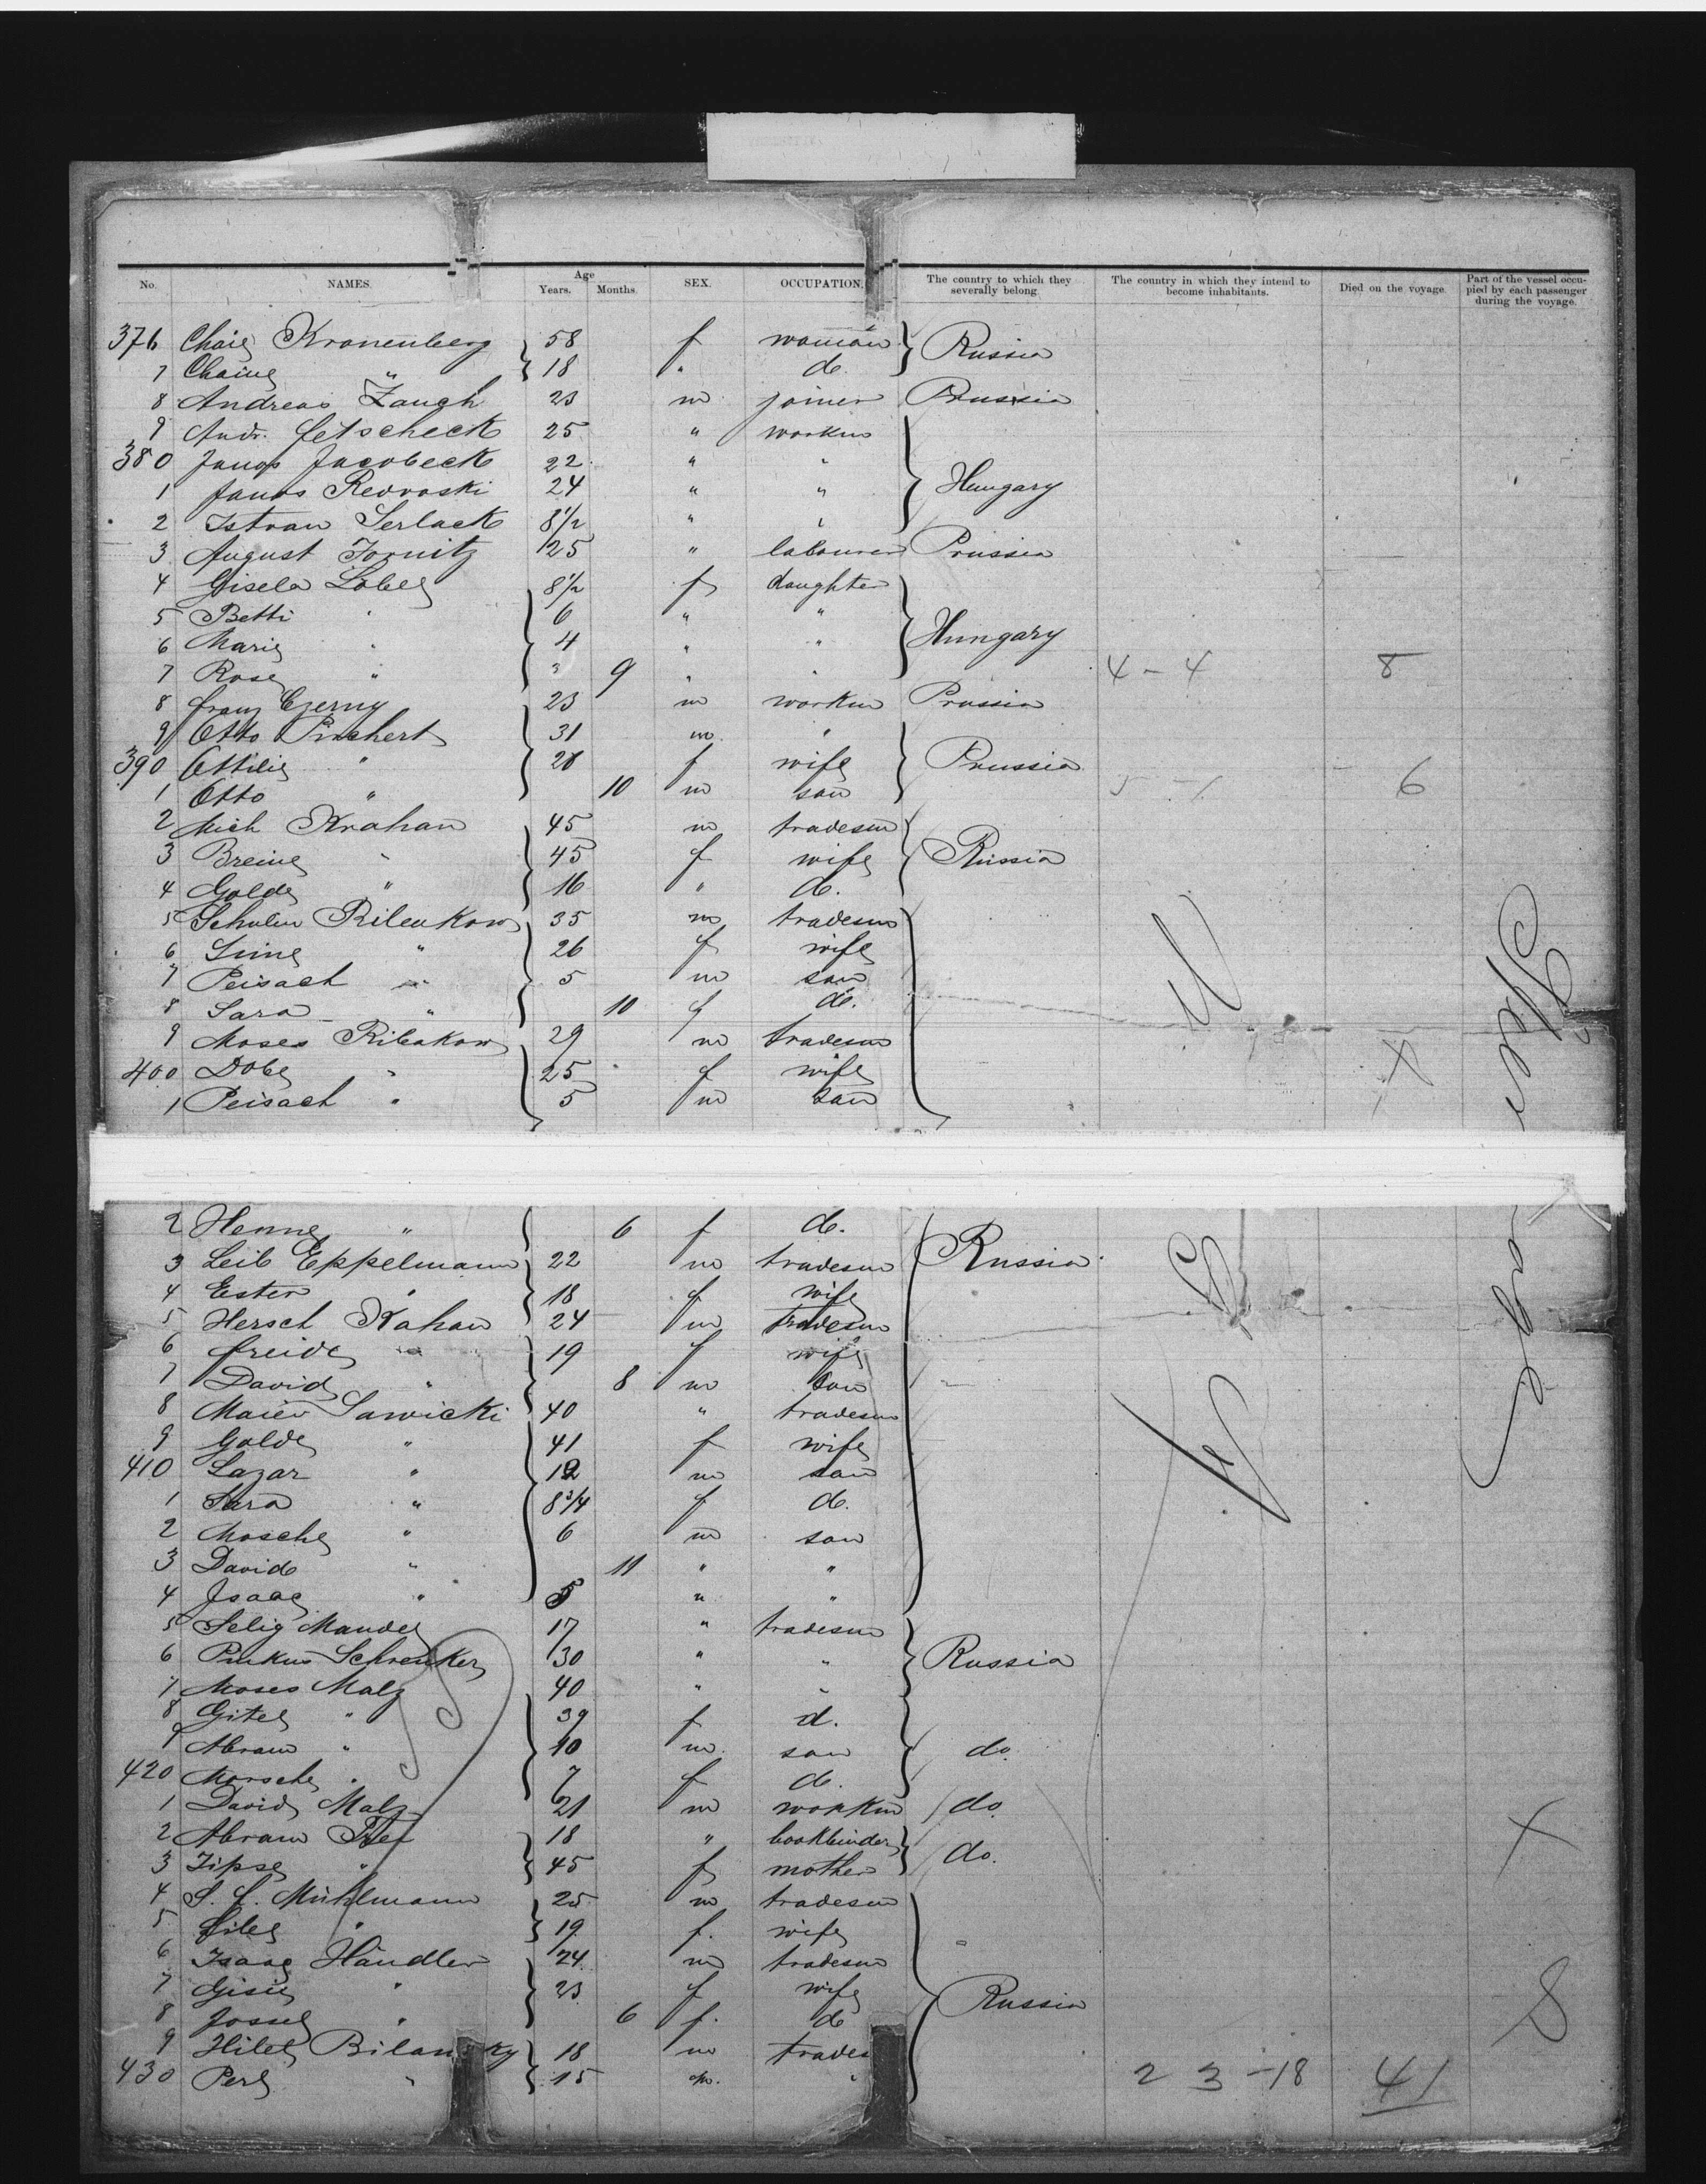 No. NAMES. Age Years. Months. SEX. OCCUPATION. The country to which they severally belong. The country in which they intend to become inhabitants. Died on the voyage. Part of the vessel occupied by each passenger during the voyage.
376 Chaie Kronenberg 58 f woman Russia
7 Chaine " 18 " do.
8 Andreas Zaugh 23 m joiner Prussia
9 Andr. Jetscheck 25 " workm
380 Janos Jacobeck 22 " "
1 Janos Revroski 24 " " Hungary
2 Istvan Serlack 8 1/2 " "
3 August Jornitz 25 " labourer Prussia
4 Gisela Lobel 8 1/2 f daughter
5 Betti " 6 " "
6 Marie " 4 " " Hungary
7 Rose " " 9 " " 4 - 4 8
8 Franz Czerny 23 m workm Prussia
9 Otto Pirchert 31 m "
390 Ottilie " 28 f wife Prussia
1 Otto " 10 m son 5 - 1 6
2 Mich Krahan 45 m tradesm
3 Breine " 45 f wife Russia
4 Golde " 16 " do.
5 Scholem Rilenkow 35 m tradesm
6 Sime " 26 f wife
7 Peisach " 5 m son
8 Sara " 10 f do.
9 Moses Ribakow 29 m tradesm
400 Dobe " 25 f wife
1 Peisach " 5 m son
2 Henne " 6 f do.
3 Leib Eppelmann 22 m tradesm Russia
4 Ester " 18 f wife
5 Hersch Kahan 24 m tradesm
6 Freide " 19 f wife
7 David " 8 m son
8 Maier Sawicki 40 " tradesm
9 Golde " 41 f wife
410 Lazar " 12 m son
1 Sara " 8 3/4 f do.
2 Mosche " 6 m son
3 David " 11 " "
4 Isaac " 5 " "
5 Selig Mandel 17 " tradesm
6 Pinkus Schrenker 30 " " Russia
7 Moses Malz 40 " "
8 Gitel " 39 f d.
9 Abram " 10 m son do.
420 Morsche " 7 f do.
1 David Malz 21 m workm do.
2 Abram 18 " bookbinder
3 Zipse " 45 f mother do.
4 S. L. Mühlmann 25 m tradesm
5 " 19 f. wife
6 Isaac Händler 24 m tradesm
7 Gisie " 23 f wife Russia
8 Jossel " 6 f. do
9 Hilel Bilan ky 18 m trades
430 Perl " 15 m. " 2 3 -18 41